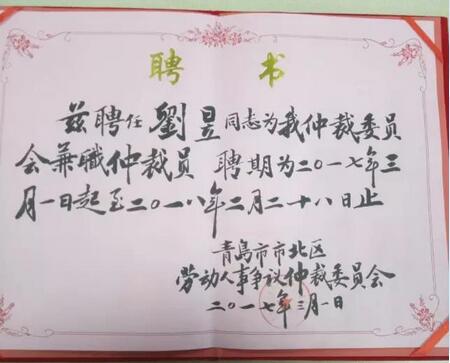 聘书
兹聘任劉昱同志为我仲裁委员
会兼職仲裁员 聘期为二〇一七年三
月一日起至二〇一八年二月二十八日止
青島市市北区
劳动人事争议仲裁委员会
二〇一七年三月一日